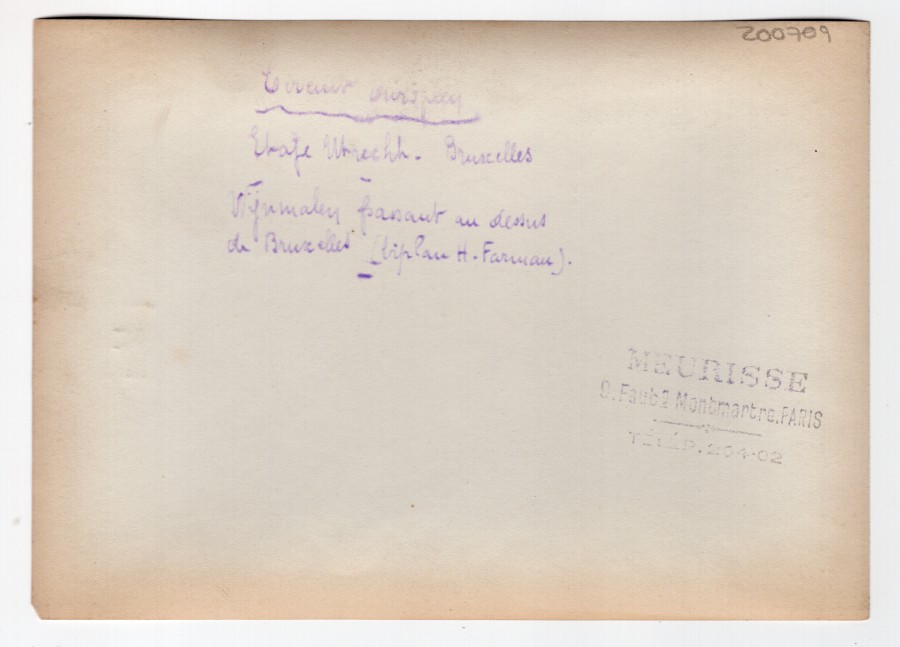 200709
Circuit européen
Etape Utrecht - Bruxelles
Wijnmalen passant au dessus
de Bruxelles (biplan H. Farman).
MEURISSE
9, Faubg Montmartre, PARIS
TÉLÉP. 204-02